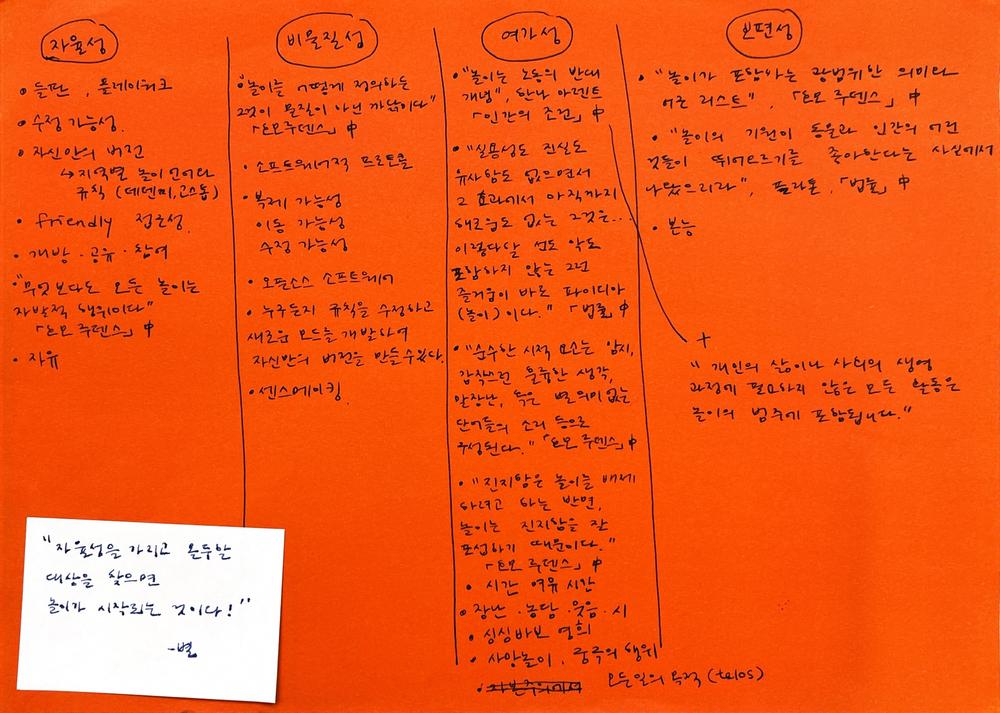 자율성
• 들판, 플레이워크
• 수정 가능성.
• 자신만의 버전
↳ 지역별 놀이 언어와
규칙 (데덴찌, 고스톱)
• friendly 접근성.
• 개방 · 공유 · 참여
• "무엇보다도 모든 놀이는
자발적 행위이다"
「호모 루덴스」 中
• 자유
"자율성을 가지고 몰두할
대상을 찾으면
놀이가 시작되는 것이다!"
-별
비물질성
• "놀이를 어떻게 정의하든
그것이 물질이 아닌 까닭이다"
「호모루덴스」 中
• 소프트웨어적 프로토콜
• 복제 가능성
이동 가능성
수정 가능성
• 오픈소스 소프트웨어
• 누구든지 규칙을 수정하고
새로운 모드를 개발하여
자신만의 버전을 만들 수 있다.
• 센스메이킹.
여가성
• "놀이는 노동의 반대
개념", 한나 아렌트
「인간의 조건」 中
• "실용성도 진실도
유사함도 없으면서
그 효과에서 아직까지
해로움도 없는 그것은...
이렇다할 선도 악도
포함하지 않는 그런
즐거움이 바로 파이디아
(놀이)이다." 「법률」 中
• "순수한 시적 요소는 암시,
갑작스런 훌륭한 생각,
말장난, 혹은 별 의미 없는
단어들의 소리 등으로
구성된다." 「호모 루덴스」 中
• "진지함은 놀이를 배제
하려고 하는 반면,
놀이는 진지함을 잘
포섭하기 때문이다."
「호모 루덴스」 中
• 시간 여유 시간
• 장난 · 농담 · 웃음 · 시
• 싱싱바보 영희
• 사양놀이, 궁극의 행위
모든일의 목적 (telos)
보편성
• "놀이가 포함하는 광범위한 의미와
어근 리스트", 「호모 루덴스」 中
• "놀이의 기원이 동물과 인간의 어린
것들이 뛰어오르기를 좋아한다는 사실에서
나왔으리라", 플라톤, 「법률」 中
• 본능
+
"개인의 삶이나 사회의 생명
과정에 필요하지 않은 모든 활동은
놀이의 범주에 포함됩니다."